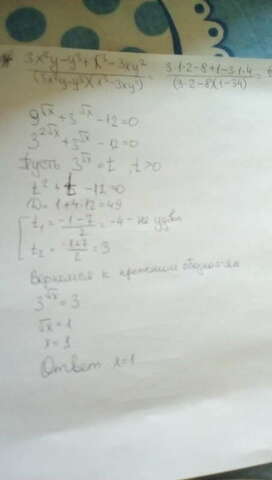 3x²y-y³+x³-3xy² / (3x²y-y³)(x³-3xy²) = 3·1·2-8+1-3·1·4 / (3·2-8)(1-34) =
9^√x+3^√x-12=0
3^2√x+3^√x-12=0
Пусть 3^√x=t, t>0
t²+t-12=0
D=1+4·12=49
t₁=(-1-7)/2=-4- не удов
t₂=(-1+7)/2=3
Вернемся к прежним обознот-ям
3^√x=3
√x=1
x=1
Ответ x=1